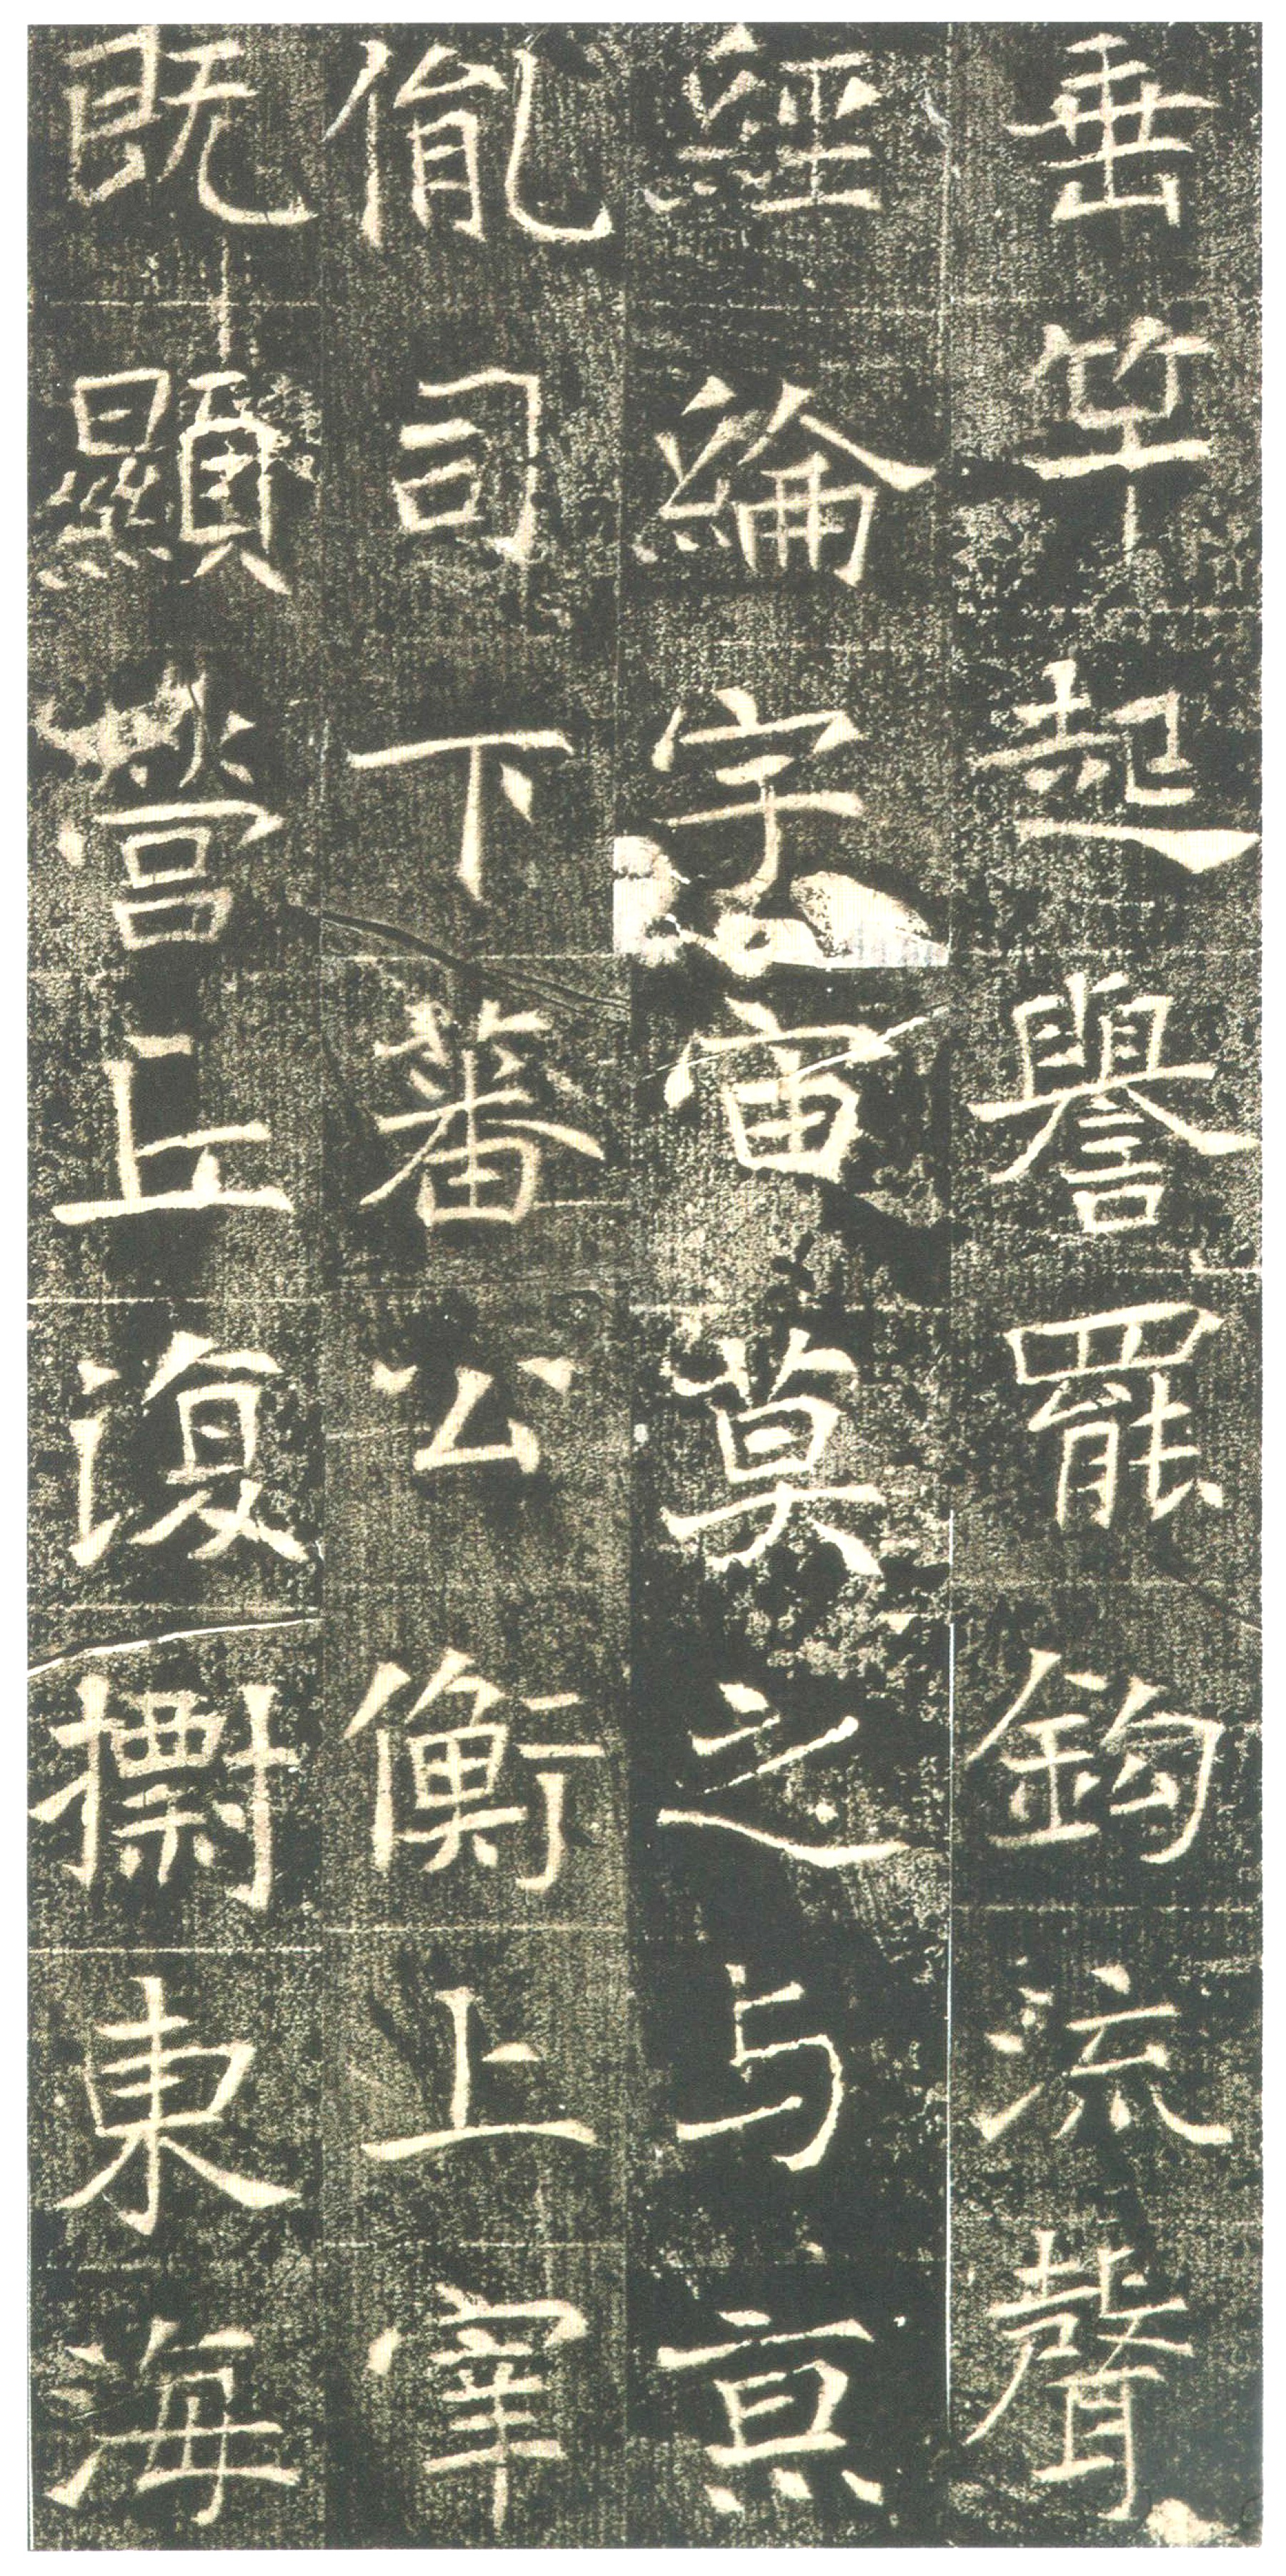 垂竿起譽罷鈎流聲
經綸宇宙莫之与京
胤司下蕃公衡上宰
既顯營丘復擲東海